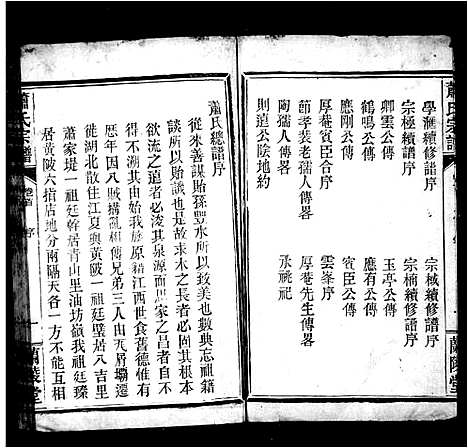 蕭氏宗譜
學滙續修譜序 宗棫續修譜序
宗極續修譜序 宗楠續修譜序
卿雲公傳 玉亭公傳
鶴鳴公傳 應有公傳
應剛公傳 賓臣公傳
厚菴宦人傳畧 雲峯序
節孝裴老孺人傳畧 厚菴先生傳畧
陶孺人傳 承祧祀
則遠公陰地約
蘭陵堂
蕭氏總譜序
從來善謀貽孫豐水所以致美也數典忘祖籍
談所以貽譏也是故木之長者必固其根本
流之遠者必浚其泉源而
家之昌者自不
得不溯其由始我族原籍江西世食舊德惟有
歷年因八賊搆亂相傳兄弟三人由瓦屑壩遷
徙湖北散住江夏與黄陂一祖廷璧居八吉里
蕭家堤一祖廷幹居青山里塘下一祖廷臻
居黄陂六指店地分南隔天各一方不能互相
蕭氏宗譜
卷首
序
一
蘭陵堂